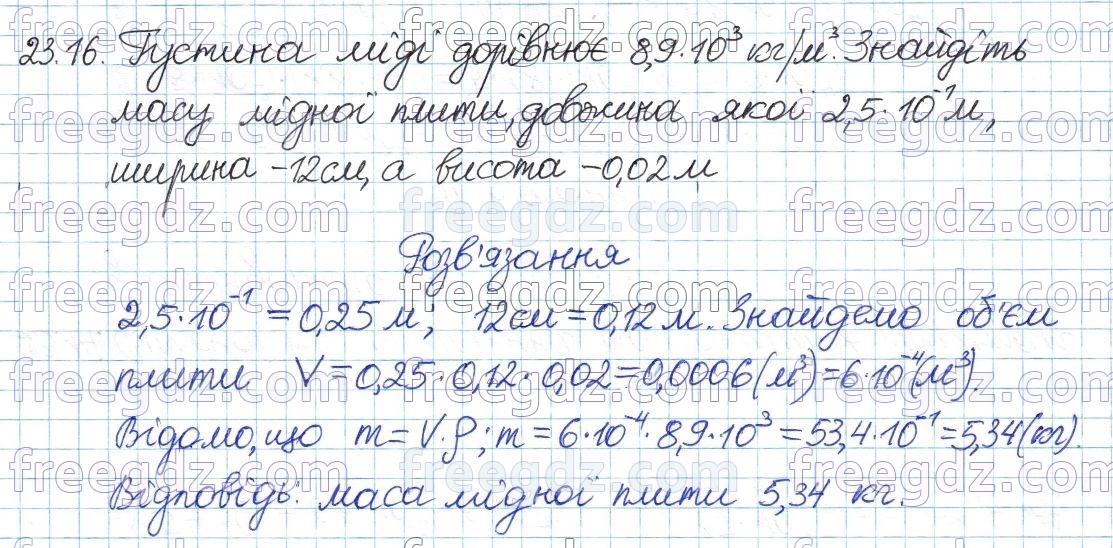 23.16. Густина міді дорівнює 8,9·10³ кг/м³. Знайдіть
масу мідної плити, довжина якої 2,5·10⁻¹м,
ширина -12см, а висота -0,02м
Розв'язання
2,5·10⁻¹ = 0,25м; 12см = 0,12м. Знайдемо об'єм
плити V = 0,25·0,12·0,02 = 0,0006 (м³) = 6·10⁻⁴(м³).
Відомо, що m = V·ρ; m = 6·10⁻⁴·8,9·10³ = 53,4·10⁻¹ = 5,34(кг).
Відповідь: маса мідної плити 5,34 кг.
freegdz.com